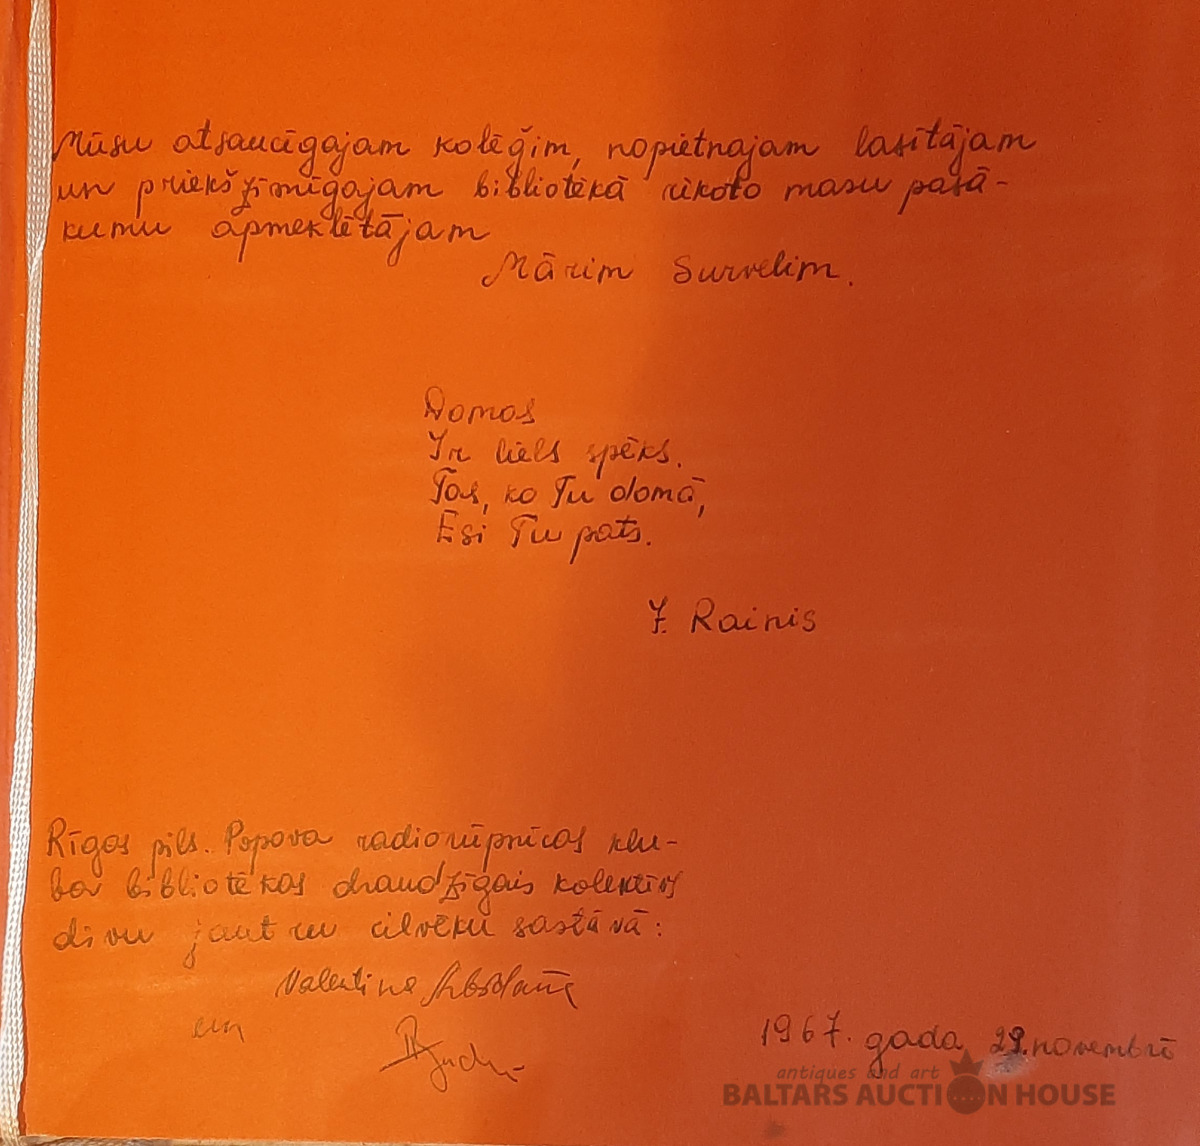 Mūsu atsaucīgajam kolēģim, nopietnajam lasītājam
un priekšzīmīgajam bibliotēkā rīkoto masu pasā-
kumu apmeklētājam
Mārim Survelim.
Domas
Ir liels spēks.
Tas, ko Tu domā,
Esi Tu pats.
J. Rainis
Rīgas pils. Popova radiorūpnīcas klu-
ba bibliotēkas draudzīgais kolektīvs
divu jautru cilvēku sastāvā:
Valentina
un
1967. gada 29. novembrī
antiques and art
BALTARS AUCTION HOUSE